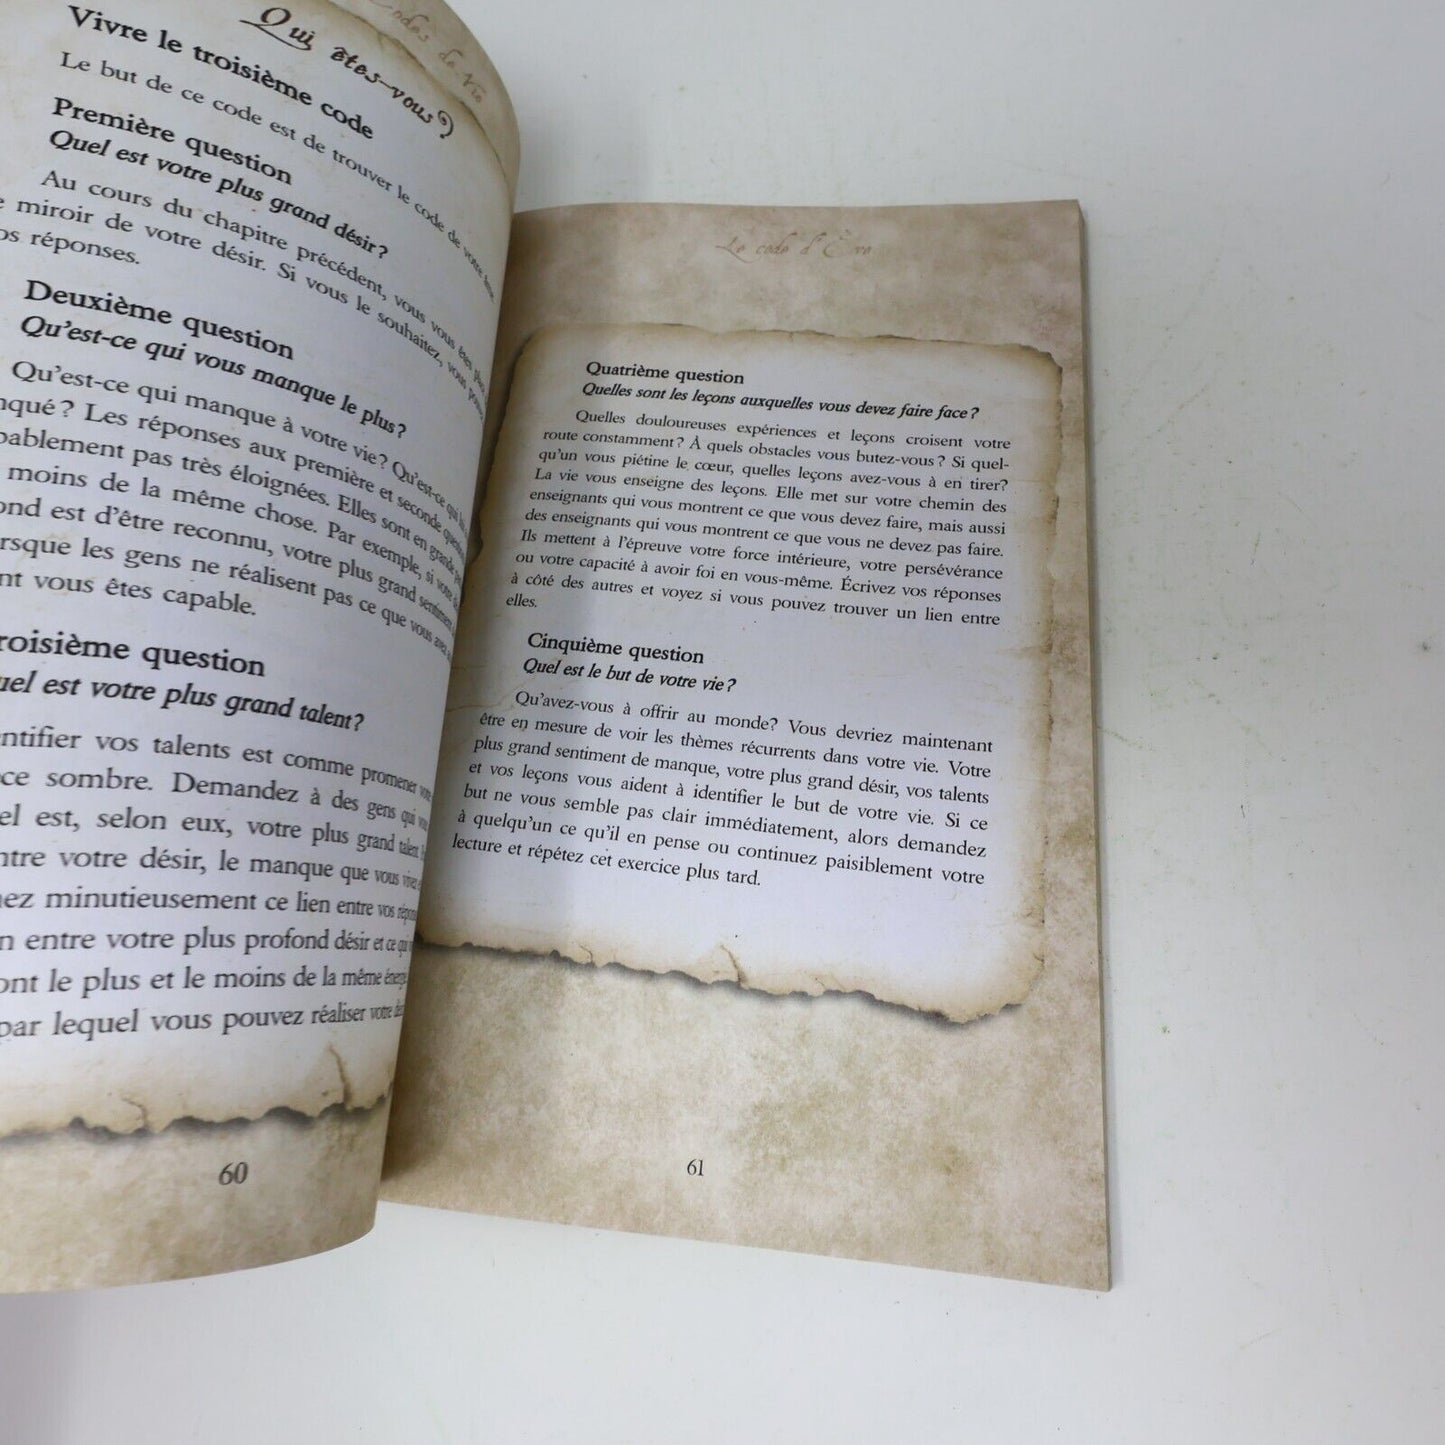 Codes de Vie
Qui êtes-vous?
Vivre le troisième code
Le but de ce code est de trouver le code de votre âme
Première question
Quel est votre plus grand désir?
Au cours du chapitre précédent, vous vous êtes
miroir de votre désir. Si vous le souhaitez, vous
réponses.
Deuxième question
Qu'est-ce qui vous manque le plus?
Qu'est-ce qui manque à votre vie? Qu'est-ce qui
Les réponses aux première et seconde
pas très éloignées. Elles sont en grande
moins de la même chose. Par exemple, si votre
est d'être reconnu, votre plus grand sentiment
les gens ne réalisent pas ce que vous avez
vous êtes capable.
question
est votre plus grand talent?
vos talents est comme promener votre
sombre. Demandez à des gens qui
est, selon eux, votre plus grand talent.
votre désir, le manque que vous vivez
minutieusement ce lien entre vos
entre votre plus profond désir et ce qui
le plus et le moins de la même
par lequel vous pouvez réaliser votre
60
Le code d'Ève
Quatrième question
Quelles sont les leçons auxquelles vous devez faire face?
Quelles douloureuses expériences et leçons croisent votre
route constamment? À quels obstacles vous butez-vous? Si quel-
qu'un vous piétine le cœur, quelles leçons avez-vous à en tirer?
La vie vous enseigne des leçons. Elle met sur votre chemin des
enseignants qui vous montrent ce que vous devez faire, mais aussi
des enseignants qui vous montrent ce que vous ne devez pas faire.
Ils mettent à l'épreuve votre force intérieure, votre persévérance
ou votre capacité à avoir foi en vous-même. Écrivez vos réponses
à côté des autres et voyez si vous pouvez trouver un lien entre
elles.
Cinquième question
Quel est le but de votre vie?
Qu'avez-vous à offrir au monde? Vous devriez maintenant
être en mesure de voir les thèmes récurrents dans votre vie. Votre
plus grand sentiment de manque, votre plus grand désir, vos talents
et vos leçons vous aident à identifier le but de votre vie. Si ce
but ne vous semble pas clair immédiatement, alors demandez
à quelqu'un ce qu'il en pense ou continuez paisiblement votre
lecture et répétez cet exercice plus tard.
61